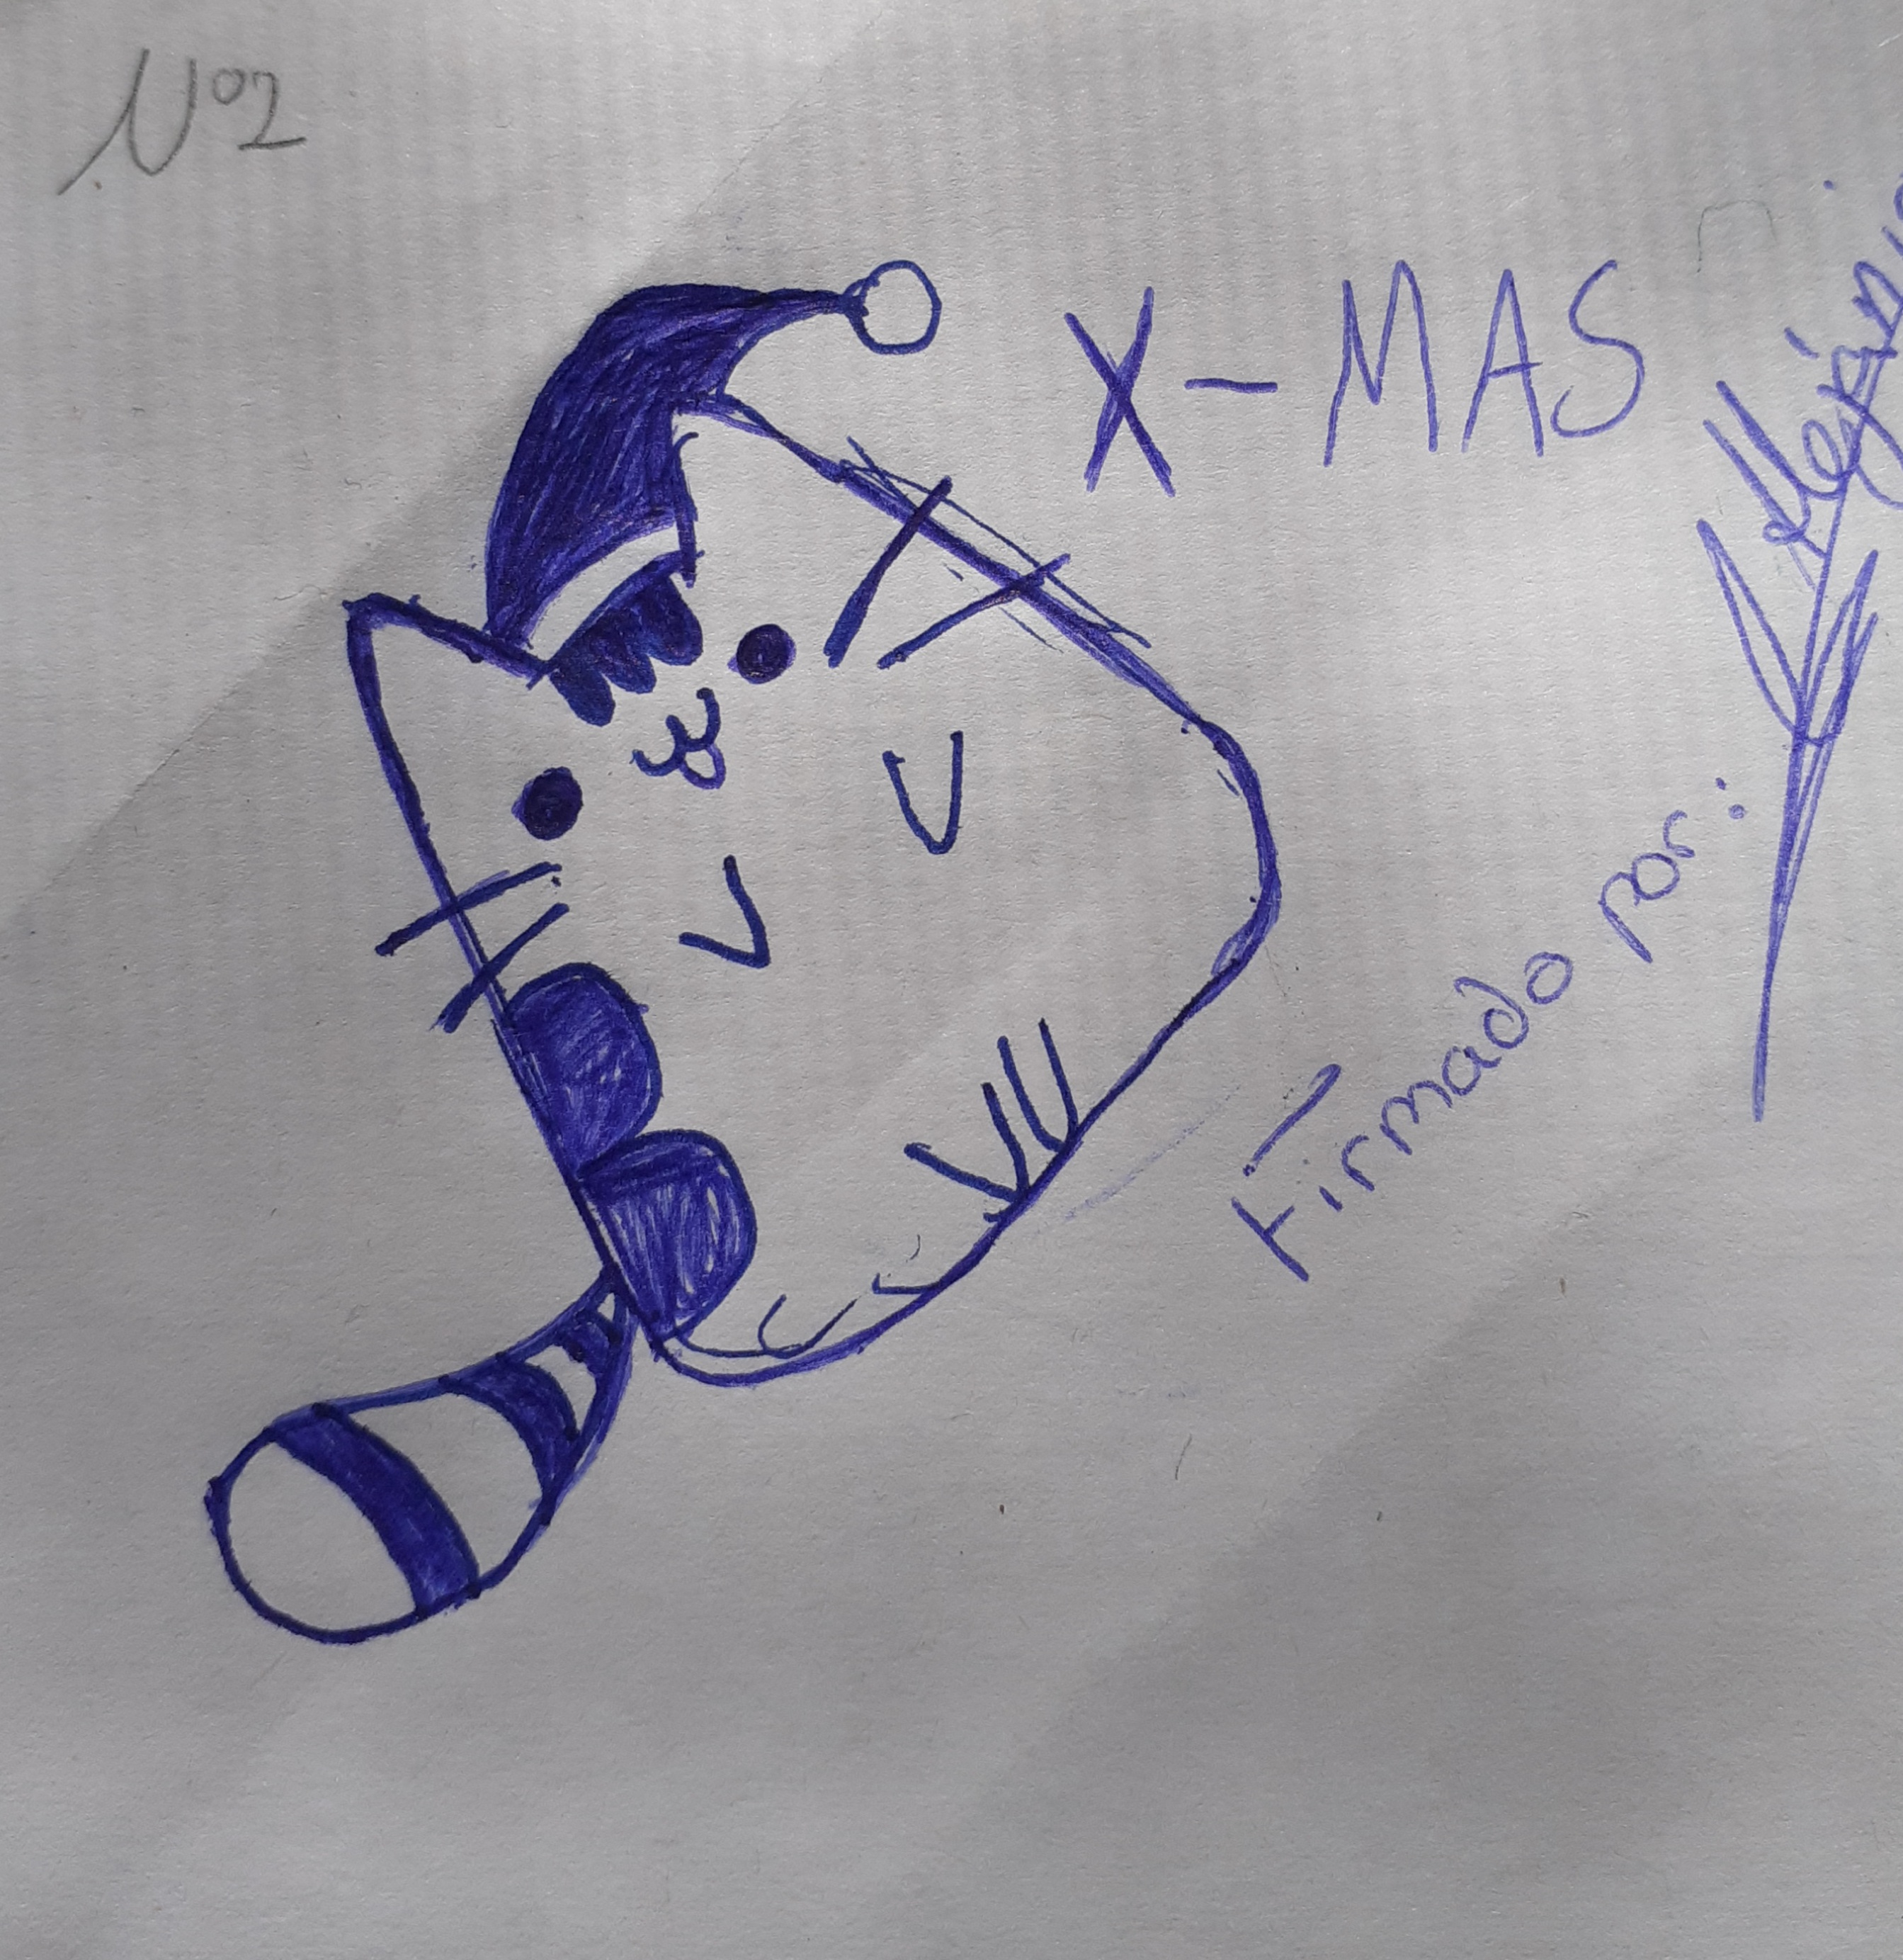 Nº2
X-MAS
Firmado por: